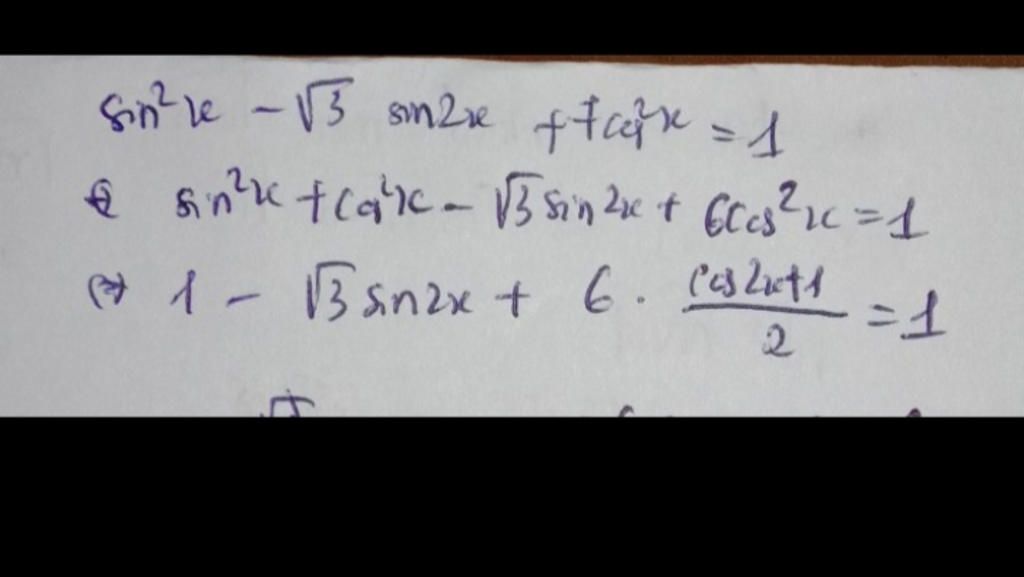 sin²x - √3 sin2x + 7cos²x = 1
⇔ sin²x + cos²x - √3 sin2x + 6cos²x = 1
⇔ 1 - √3 sin2x + 6 · (cos2x+1)/2 = 1